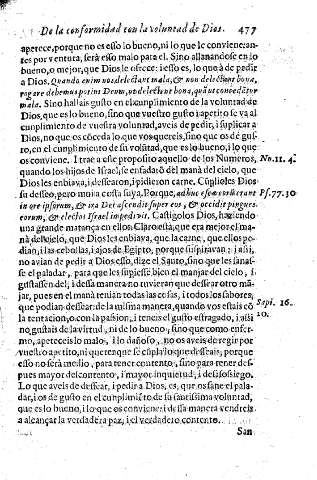 De la conformidad con la voluntad de Dios. 477
apetece, porque no es esso lo bueno, ni lo que le conviene: an-
tes por ventura, serà esso malo para el. Sino allanandose en lo
bueno, o mejor, que Dios le ofrece: i esso es, lo que à de pedir
a Dios. Quando enim nos delectant mala, & non delectant bona,
rogare debemus potius Deum, vt delectent bona, quàm vt concedãtur
mala. Sino hallais gusto en el cumplimiento de la voluntad de
Dios, que es lo bueno, sino que vuestro gusto i apetito se va al
cumplimiento de vuestra voluntad, aveis de pedir, i suplicar a
Dios, no que os cõceda lo que vos quereis, sino que os dè gus-
to, en el cumplimiento de su volũtad, que es lo bueno, i lo que
os conviene. I trae a este proposito aquello de los Numeros, No. 11. 4.
quando los hijos de Israel, se enfadarõ del manà del cielo, que
Dios les enbiava, i dessearon, i pidieron carne. Cũplioles Dios
su desseo, pero mui a costa suya. Porque, adhuc escæ eorũ erant Ps. 77. 30
in ore ipsorum, & ira Dei ascendit super eos, & occidit pingues
eorum, & electos Israel impedivit. Castigolos Dios, haziendo
una grande matança en ellos. Claro està, que era mejor el ma-
nà del cielo, que Dios les enbiava, que la carne, que ellos pe-
dian, i las cebollas, i ajos de Egipto, porque suspiravan: i assi,
no avian de pedir a Dios esso, dize el Santo, sino que les sanas-
se el paladar, para que les supiesse bien el manjar del cielo, i
gustassen del; i dessa manera no tuvieran que dessear otro mã-
jar, pues en el manà tenian todas las cosas, i todos los sabores,
que podian dessear: de la misma manera, quando vos estais cõ Sapi. 16.
la tentacion, o con la passion, i teneis el gusto estragado, i assi 20.
no gustais de la virtud, ni de lo bueno, sino que como enfer-
mo, apeteceis lo malo, i lo dañoso, no os aveis de regir por
vuestro apetito, ni querer que se cũpla lo que desseais, porque
esso no serà medio, para tener contento, sino para tener des-
pues mayor descontento, i mayor inquietud, i desassossiego.
Lo que aveis de dessear, i pedir a Dios, es, que os sane el pala-
dar, i os dè gusto en el cumplimiẽto de su santissima voluntad,
que es lo bueno, i lo que os conviene: i dessa manera vendreis
a alcançar la verdadera paz, i el verdadero contento.
San